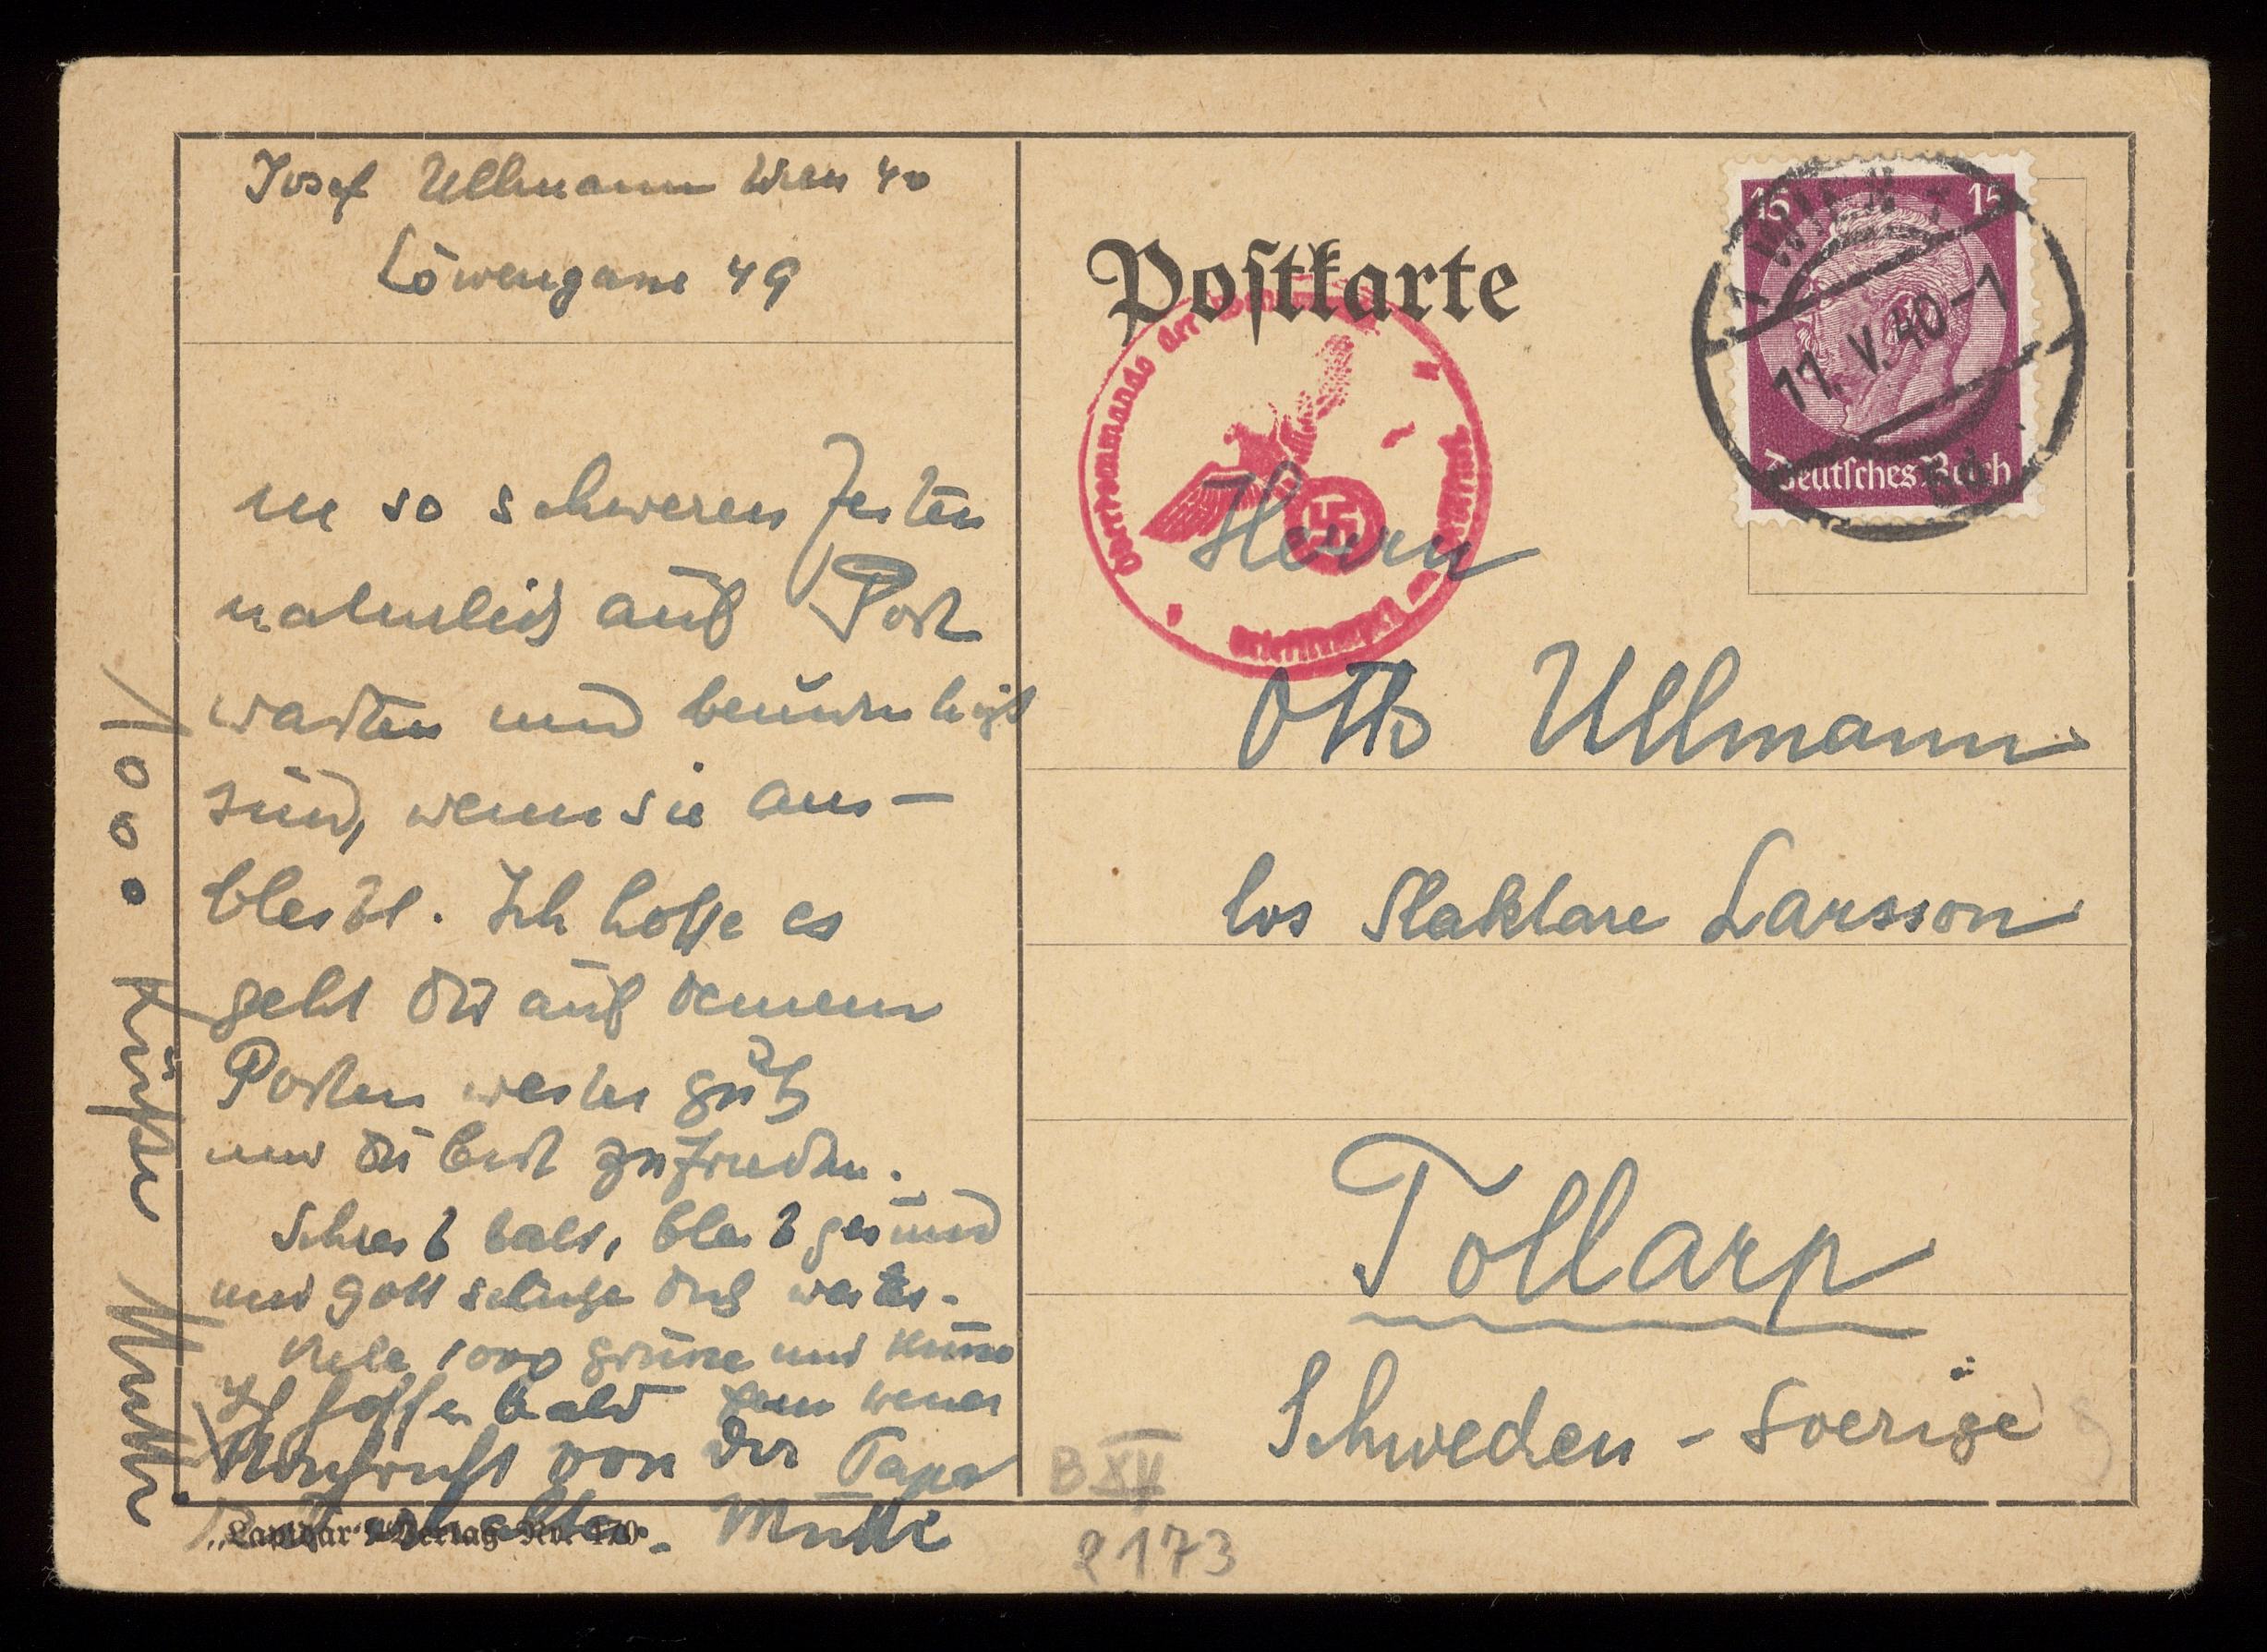 Josef Ullmann Wien 40
Löwengasse 49
in so schweren Zeiten
natürlich auf Post
warten und beunruhigt
sind, wenn sie aus-
bleibt. Ich hoffe es
geht dir auf deinem
Posten weiter gut
und du bist zufrieden.
Schreib bald, bleib gesund
und Gott schütze dich weiter.
Viele 1000 Grüsse und Küsse
Ich hoffe bald
von dir Papa
Mutti
1000 Küsse Mutti
„Lapidar“-Verlag Nr. 170
Postkarte
Oberkommando der
Briefstempel
WIEN
11.V.40-1
15 15
Deutsches Reich
Herrn
Otto Ullmann
hos Slaktare Larsson
Tollarp
Schweden - Sverige
B XII
2173